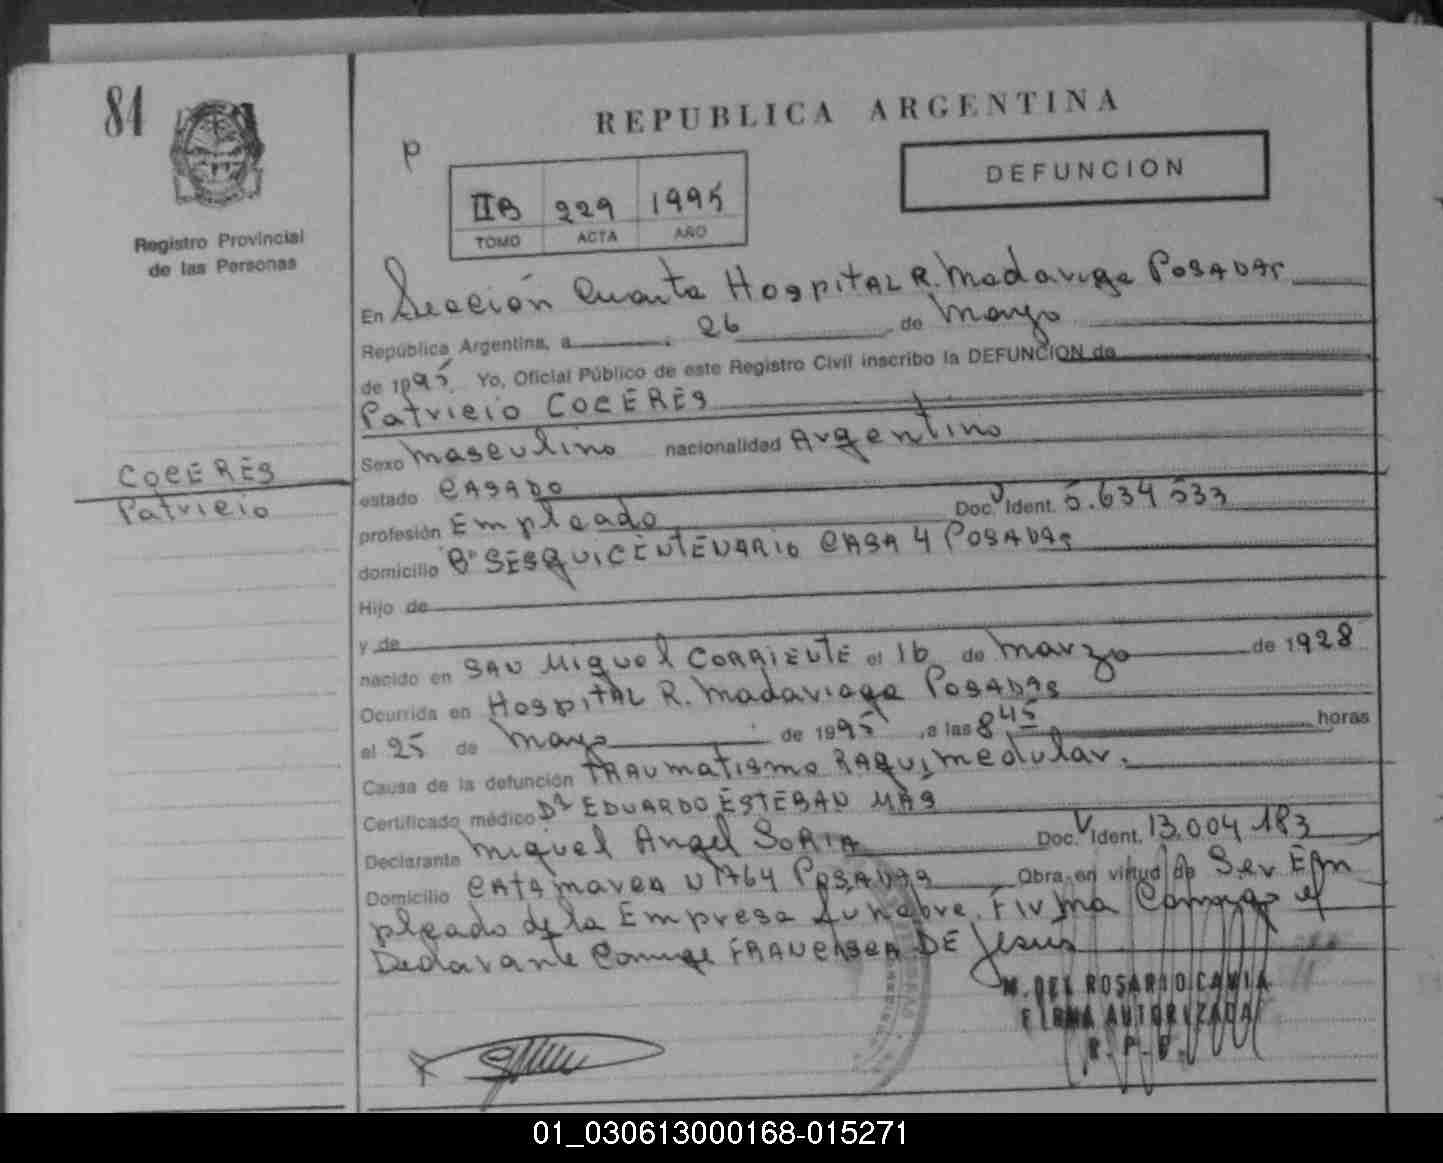 84
REPUBLICA ARGENTINA
P
DEFUNCION
IIB 229 1995
TOMO ACTA AÑO
Registro Provincial
de las Personas
En Sección Cuarta Hospital R. Madariaga Posadas
República Argentina, a 26 de Mayo
de 1995. Yo, Oficial Público de este Registro Civil inscribo la DEFUNCION de
Patricio COCERES
Sexo masculino nacionalidad Argentino
estado CASADO
profesión Empleado Doc. Ident. 5.634 533
domicilio Bº SESQUICENTENARIO CASA 4 POSADAS
COCERES
Patricio
Hijo de
y de
nacido en SAN Miguel CORRIENTE el 16 de marzo de 1928
Ocurrida en Hospital R. Madariaga POSADAS
el 25 de mayo de 1995, a las 8 45 horas
Causa de la defunción TRAumatismo RAQuimedular.
Certificado médico Dr EDUARDO ESTEBAN MAS
Declarante Miguel Angel SORIA Doc. Ident. 13.004 183
Domicilio CATAMARCA N 1764 POSADAS Obra en virtud de Ser Em
pleado de la Empresa Funebre. Firma Conmigo el
Declarante Conyuge FRANCISCA DE Jesus
M. DEL ROSARIO CAWIA
FIRMA AUTORIZADA
R. P. P.
01_030613000168-015271